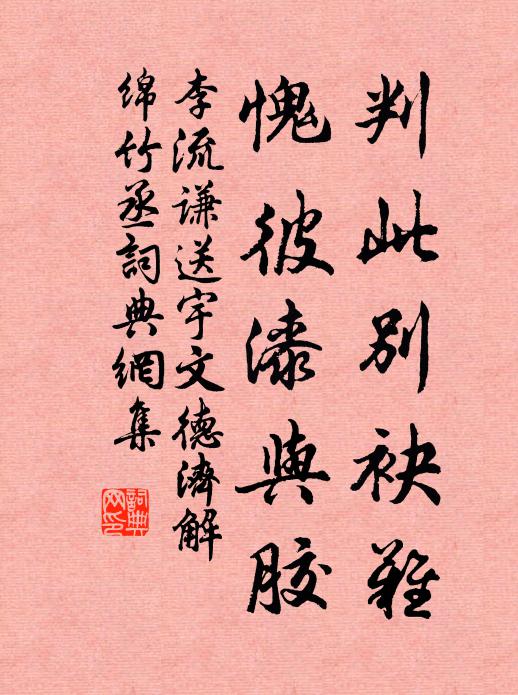 判此别袂难
愧彼漆與胶
李流谦送宇文德濟解
绵竹丞詞典網集
詞典
网印